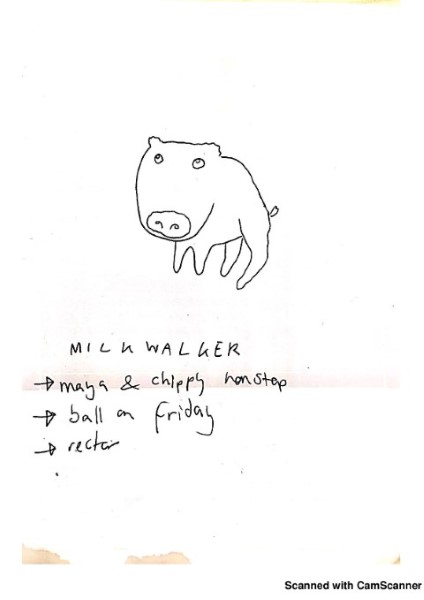 MILKWALKER
→ maya & chippy nonstop
→ ball on friday
→ rector
Scanned with CamScanner